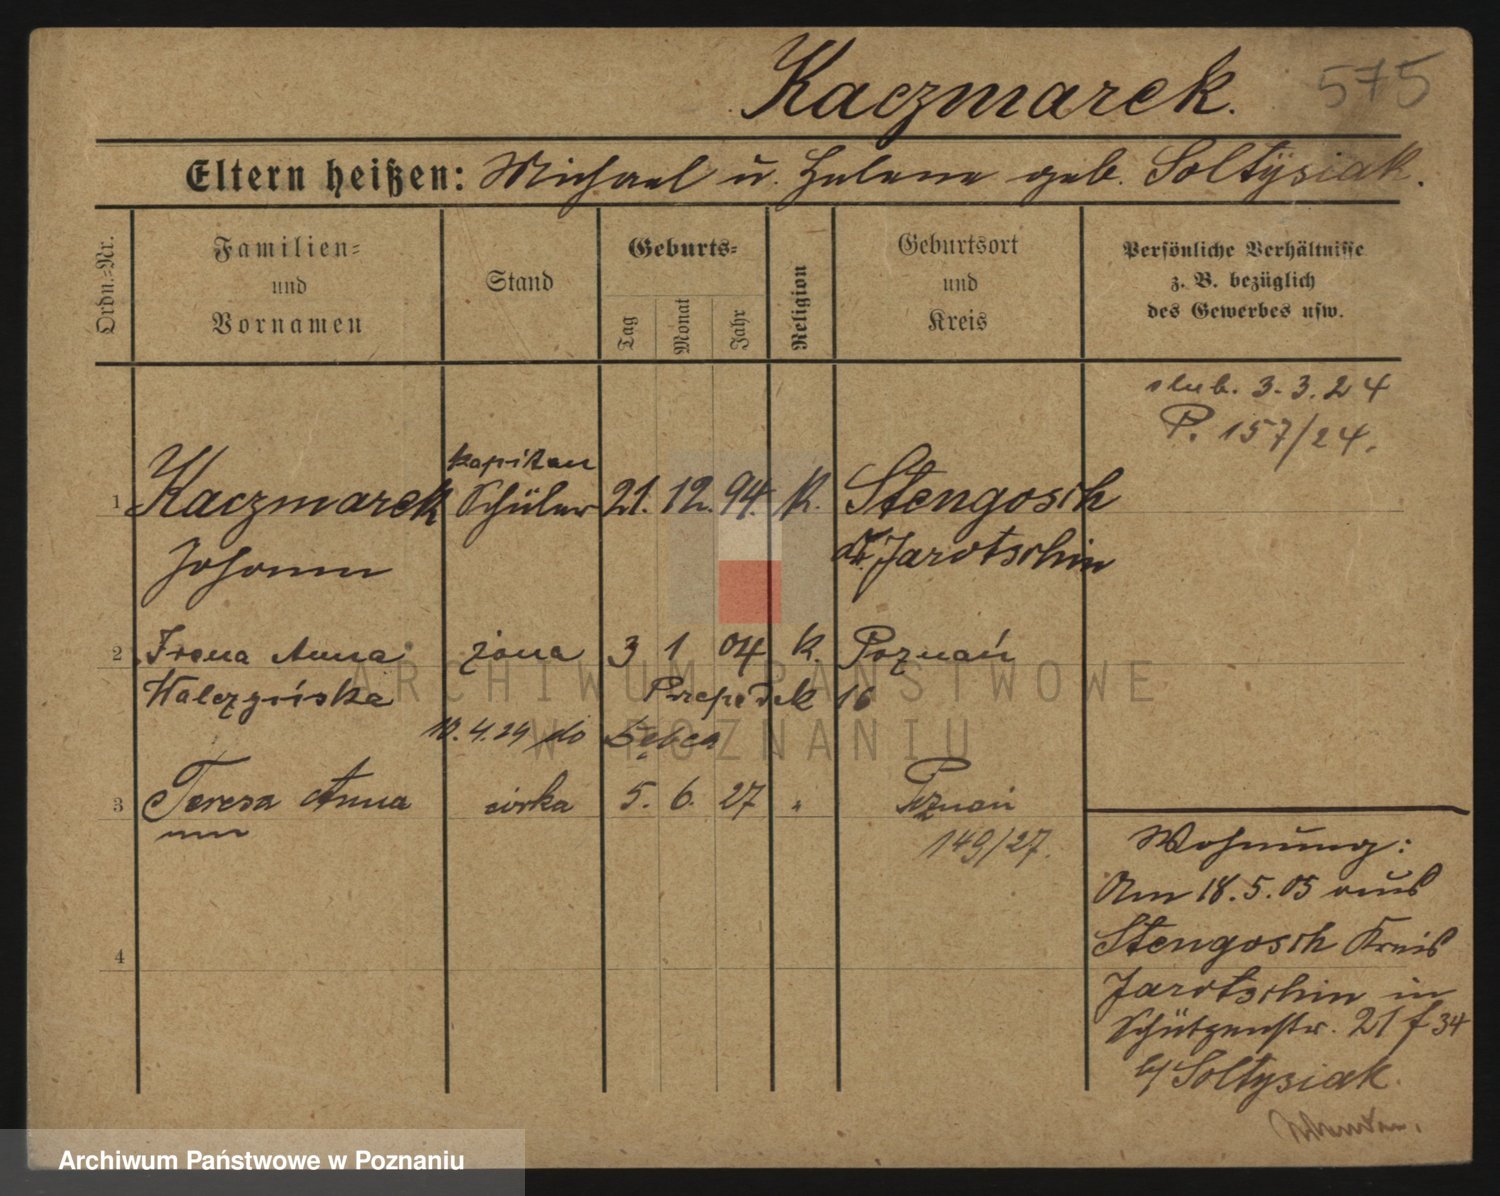 Kaczmarek. 575
Eltern heißen: Michael u. Helene geb. Soltysiak.
Ordn.=Nr.
Familien=
und
Vornamen
Stand
Geburts=
Tag
Monat
Jahr
Religion
Geburtsort
und
Kreis
Persönliche Verhältnisse
z. B. bezüglich
des Gewerbes usw.
slub. 3.3.24
P. 157/24.
kapitan
1 Kaczmarek Schüler 21. 12. 94. K. Stengosch
Johann Kr. Jarotschin
2 Irena Anna żona 3 1 04 K. Poznań
Walczyńska Przepadek 16
10.4.29 do
3 Teresa Anna córka 5. 6. 27 " Poznań
149/27.
4
Wohnung:
Am 18.5.05 aus
Stengosch Kreis
Jarotschin in
Schützenstr. 21 f 34
b/ Soltysiak.
ARCHIWUM PAŃSTWOWE
W POZNANIU
Archiwum Państwowe w Poznaniu